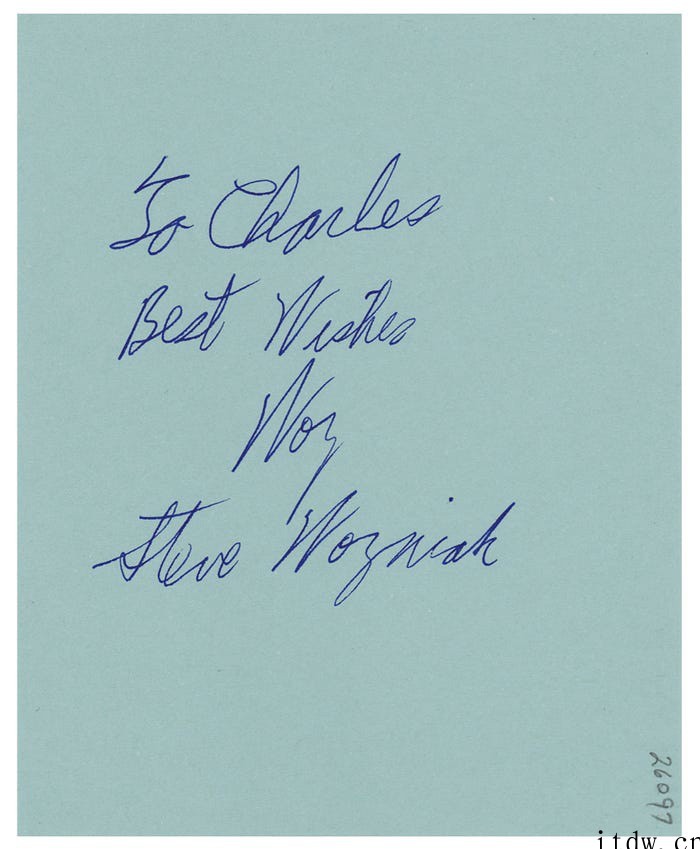 To Charles
Best Wishes
Woz
Steve Wozniak
26097
itdw.cn